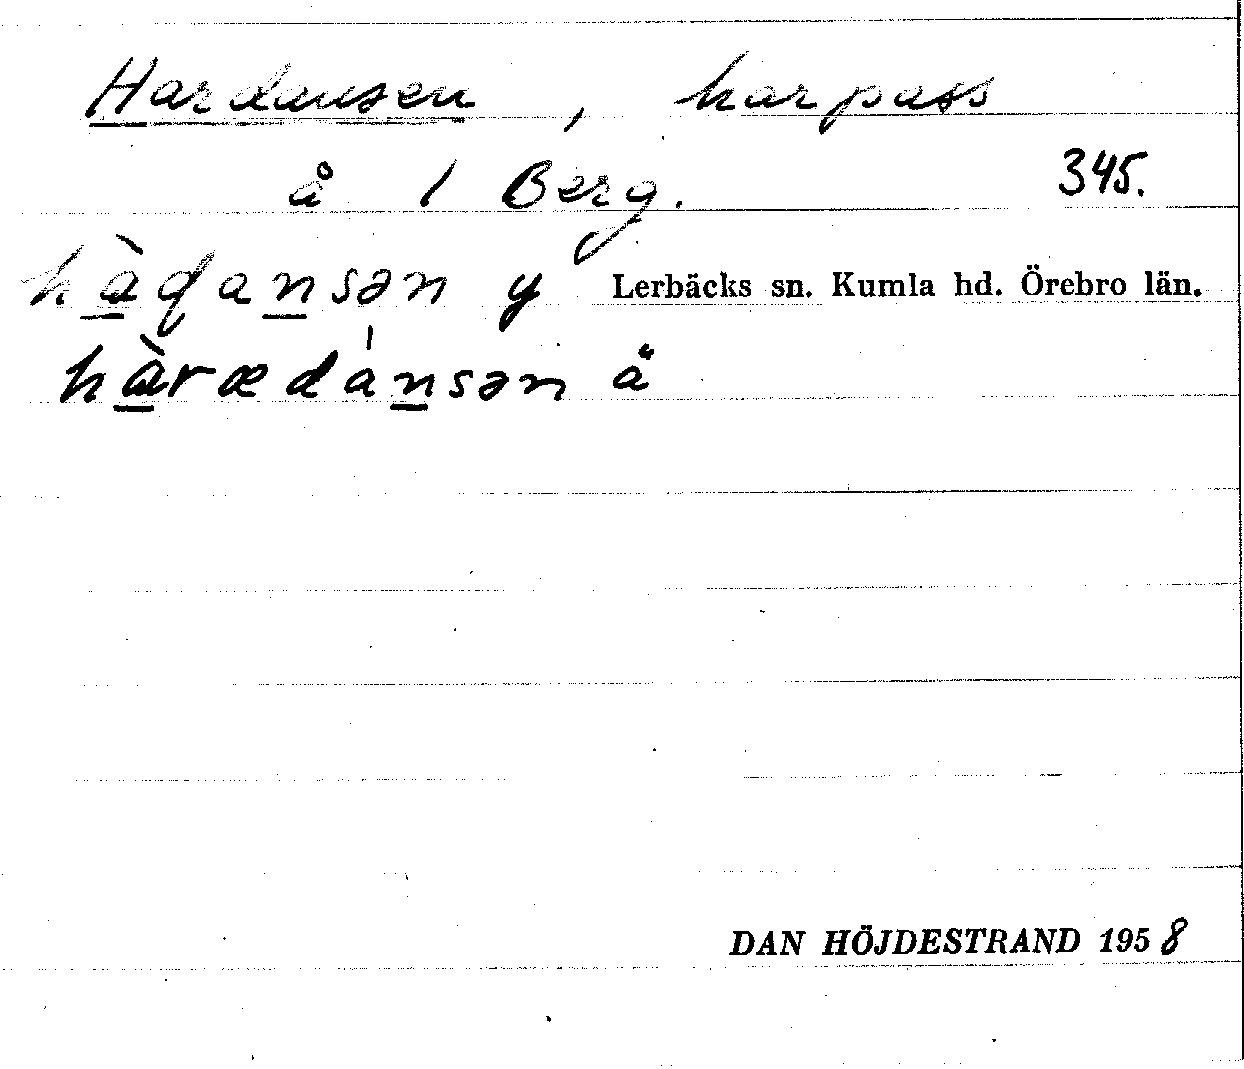 Hardansen, harpass
å 1 Berg. 345.
hàɖansən y Lerbäcks sn. Kumla hd. Örebro län.
hàrædánsən ä
DAN HÖJDESTRAND 1958